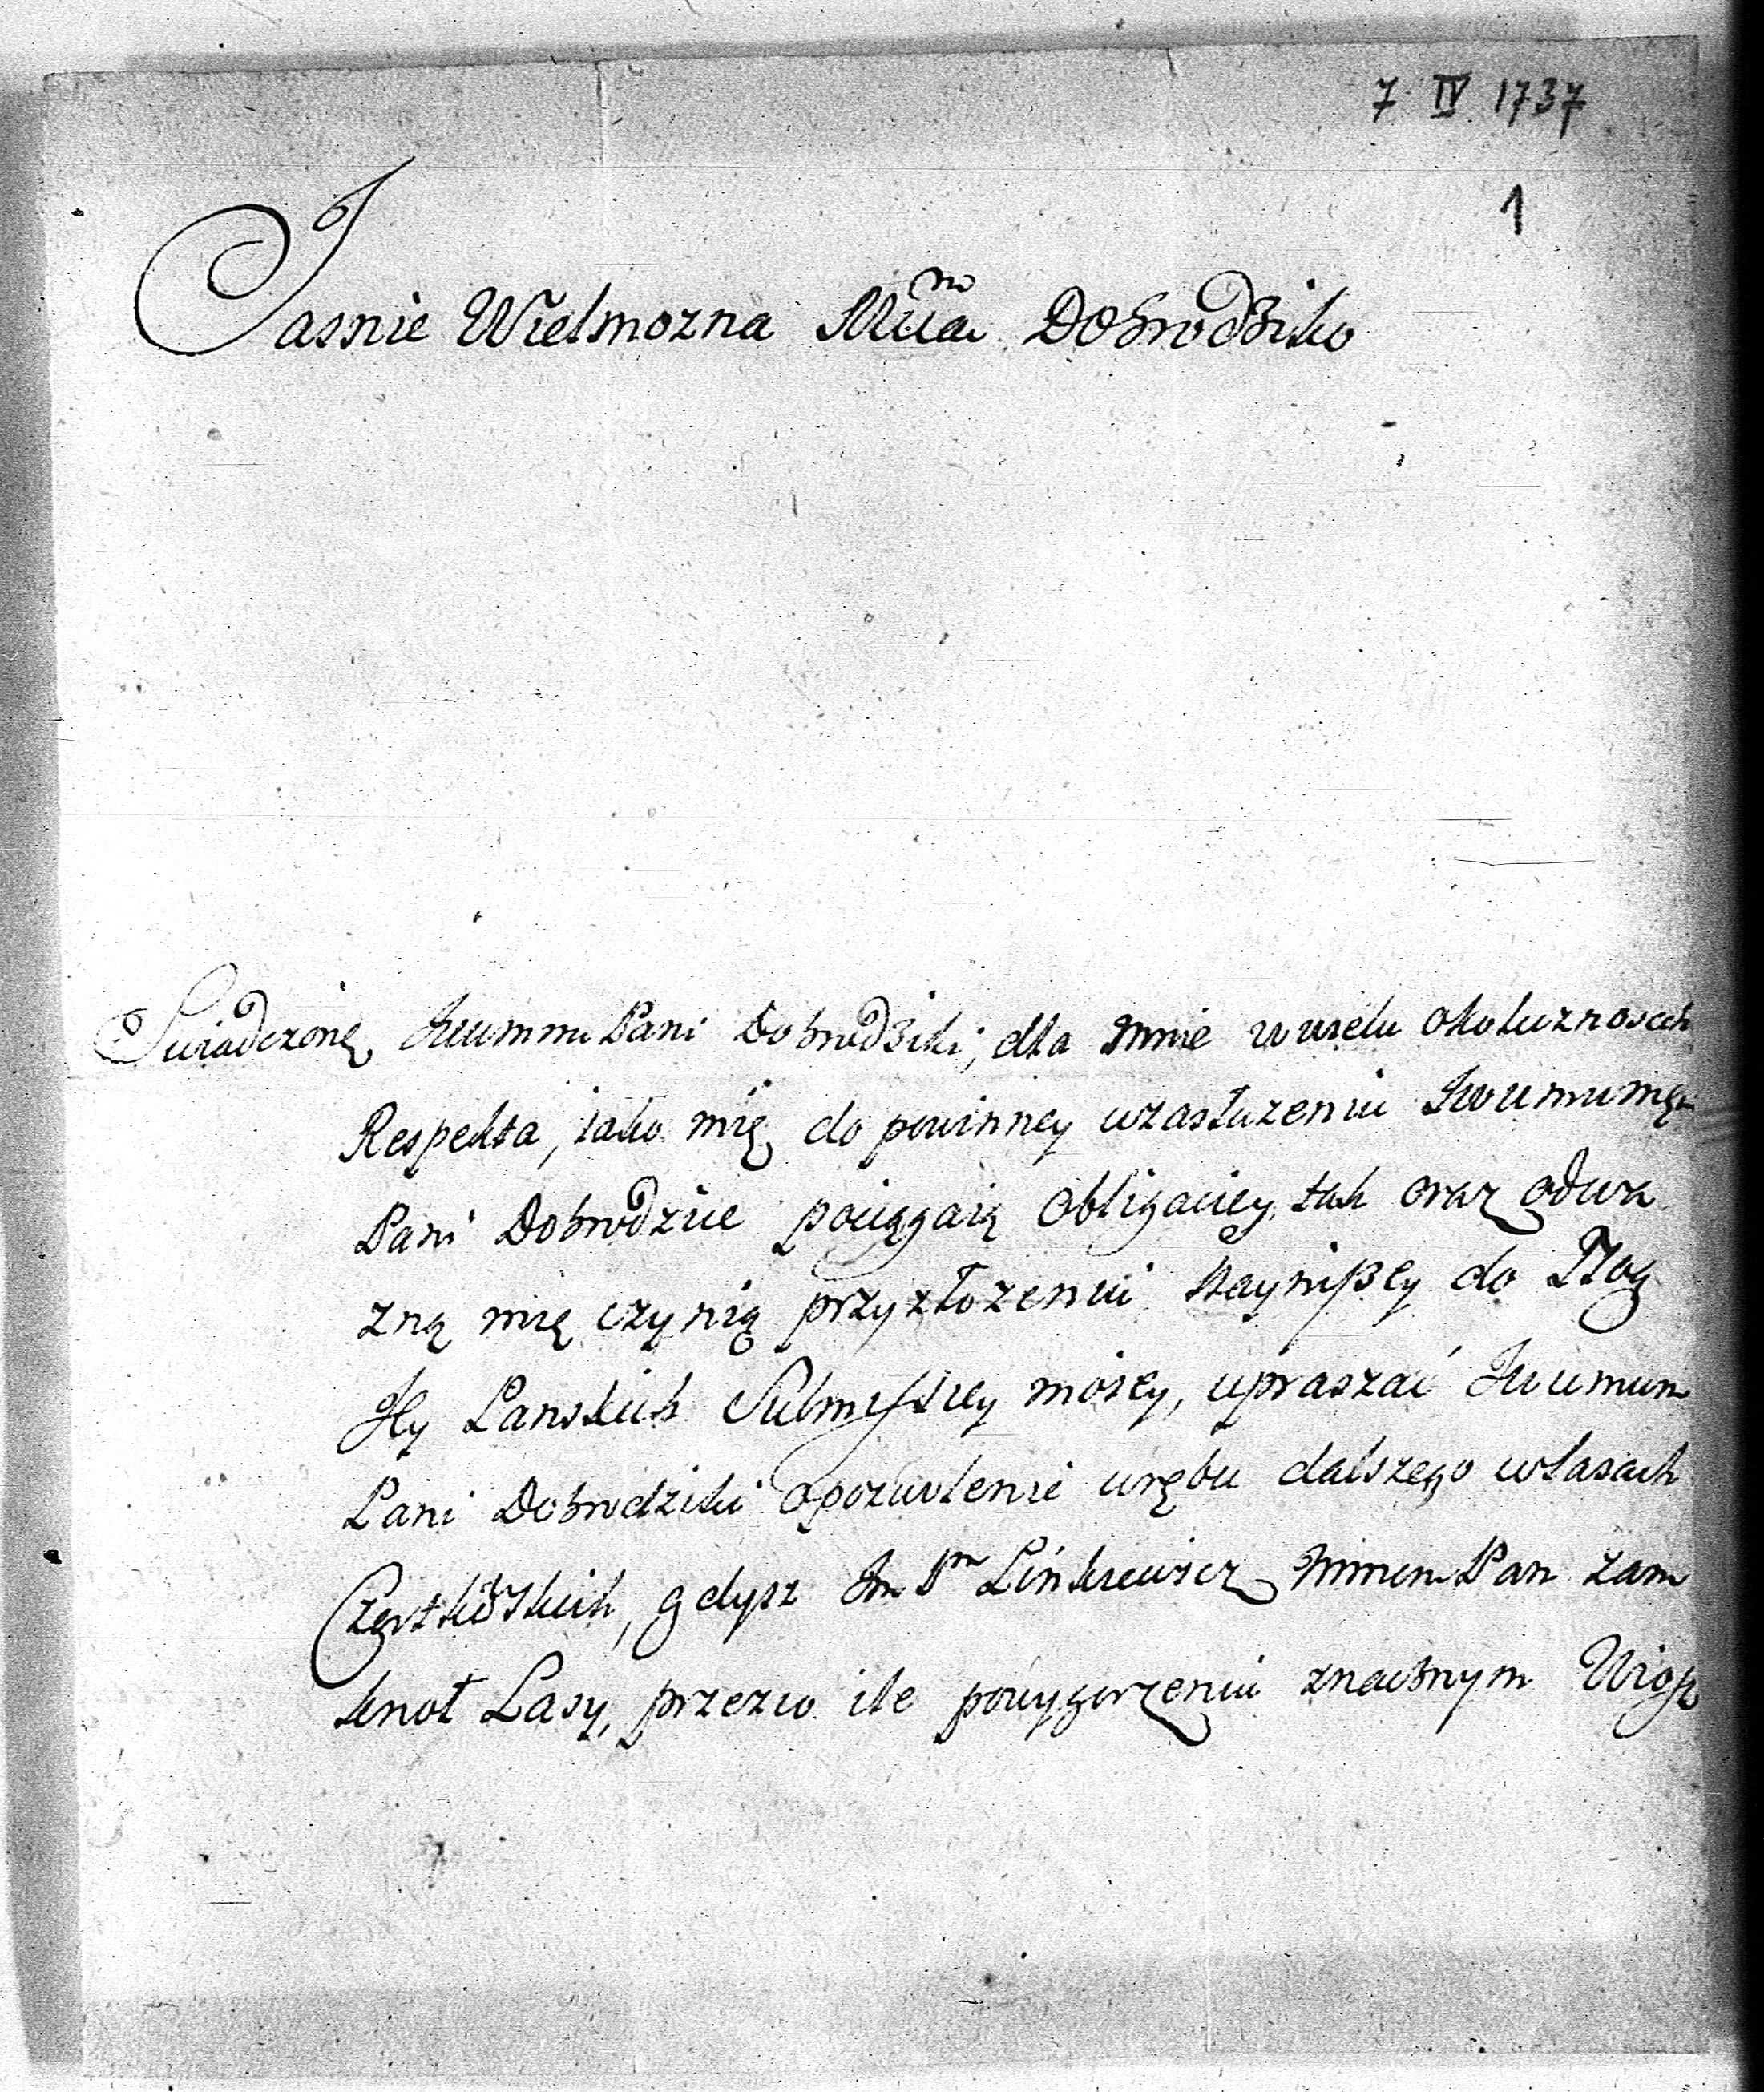 7 IV 1737
1
Jasnie Wielmozna Mcia Dobrodziko
Swiadczonę Jwummi Pani Dobrodziki, dla mnie wwielu okolicznosciach
Respekta, iako mię do powinney wzasluzeniu Jwummę
Pani Dobrodzice pociągaią obligaciey, tak oraz odwa
zną mię czynią przyzłozeniu nayniższey do Nog
Jey Panskich Submissiey moiey, upraszać Jwumm
Pani Dobrodziki opozwolenie wrębu dalszego wlasach
gdysz Im Pn Linkiewicz mmem Pan zam
knoł Lasy, przezco ile powygorzeniu znacznym